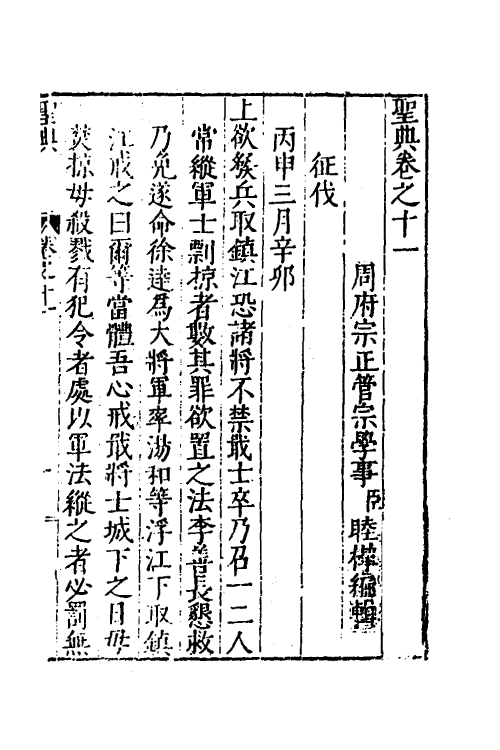 聖典卷之十一
周府宗正管宗學事臣睦㮮編輯
征伐
丙申三月辛卯
上欲發兵取鎮江恐諸將不禁戢士卒乃召一二人
常縱軍士剽掠者數其罪欲置之法李善長懇救
乃免遂命徐達為大將軍率湯和等浮江下取鎮
江戒之曰爾等當體吾心戒戢將士城下之日毋
焚掠毋殺戮有犯令者處以軍法縱之者必罰無
聖典
卷之十一
一